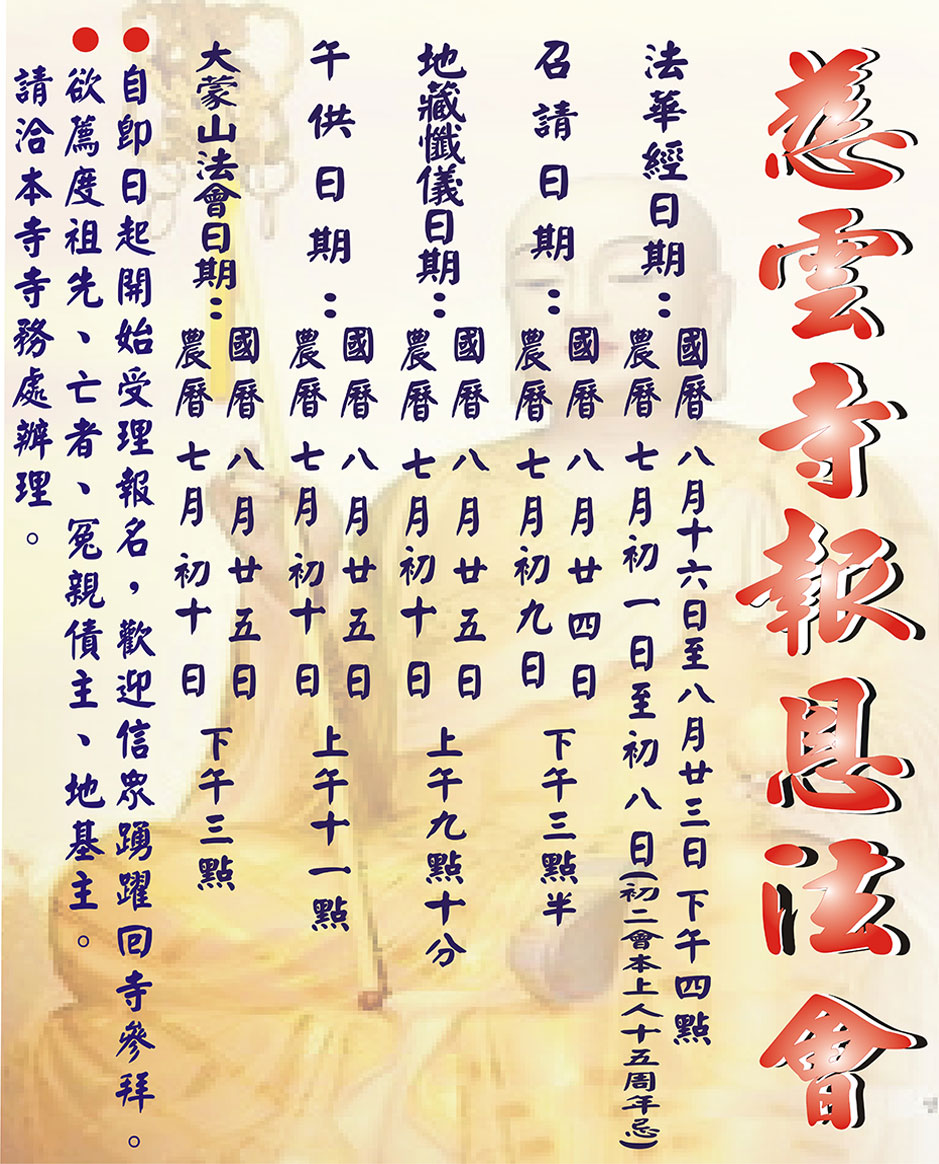 慈雲寺報恩法會
法華經日期：
國曆八月十六日至八月廿三日下午四點
農曆七月初一日至初八日(初二會本上人十五周年忌)
召請日期：
國曆八月廿四日
農曆七月初九日
下午三點半
地藏懺儀日期：
國曆八月廿五日
農曆七月初十日
上午九點十分
午供日期：
國曆八月廿五日
農曆七月初十日
上午十一點
大蒙山法會日期：
國曆八月廿五日
農曆七月初十日
下午三點
●自即日起開始受理報名，歡迎信眾踴躍回寺參拜。
●欲薦度祖先、亡者、冤親債主、地基主。
請洽本寺寺務處辦理。